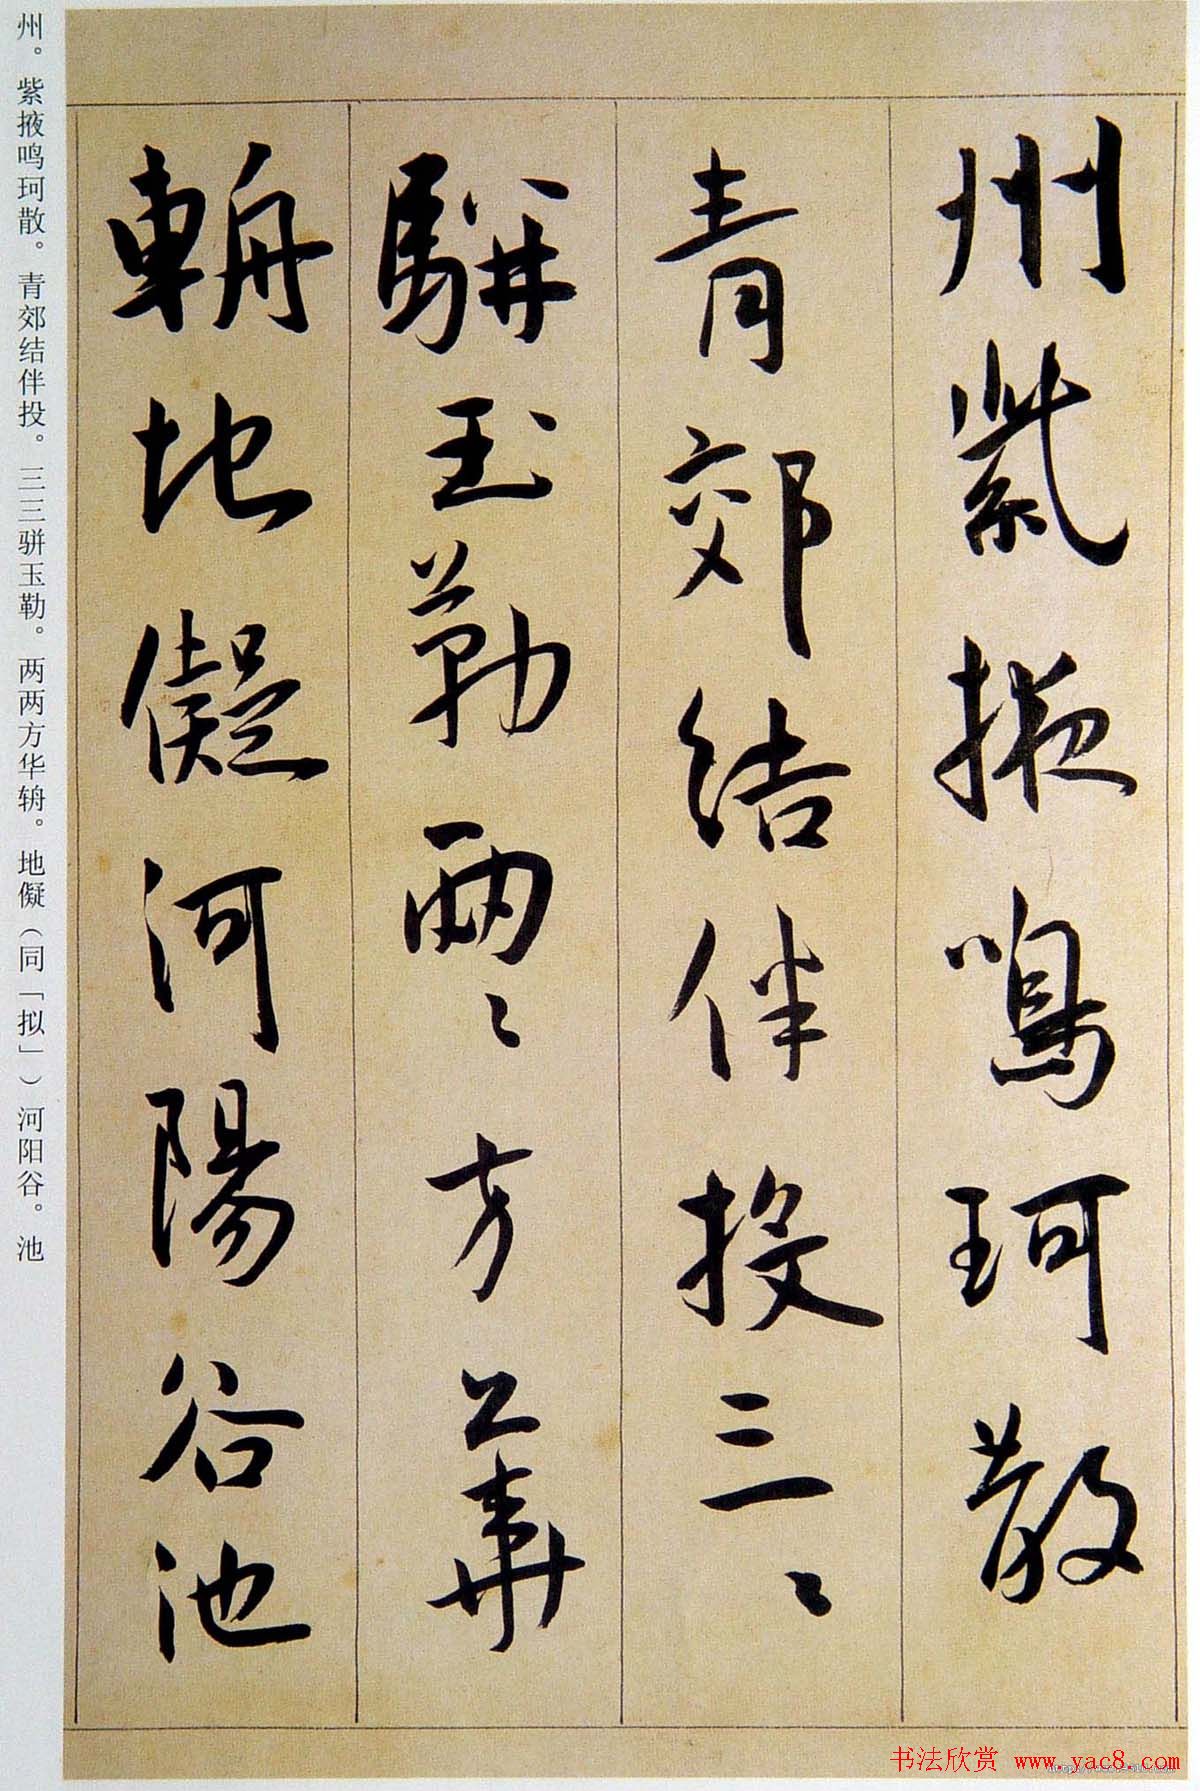 州紫掖鳴珂散
青郊結伴投三〻
騈玉勒兩〻方華
輈地儗河陽谷池
州。紫掖鸣珂散。青郊结伴投。三三骈玉勒。两两方华辀。地儗（同「拟」）河阳谷。池
书法欣赏 www.yac8.com